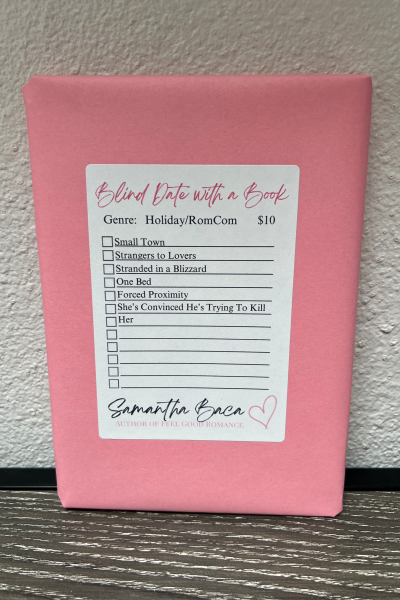 Blind Date with a Book
Genre: Holiday/RomCom $10
Small Town
Strangers to Lovers
Stranded in a Blizzard
One Bed
Forced Proximity
She's Convinced He's Trying To Kill
Her
Samantha Baca
AUTHOR OF FEEL GOOD ROMANCE